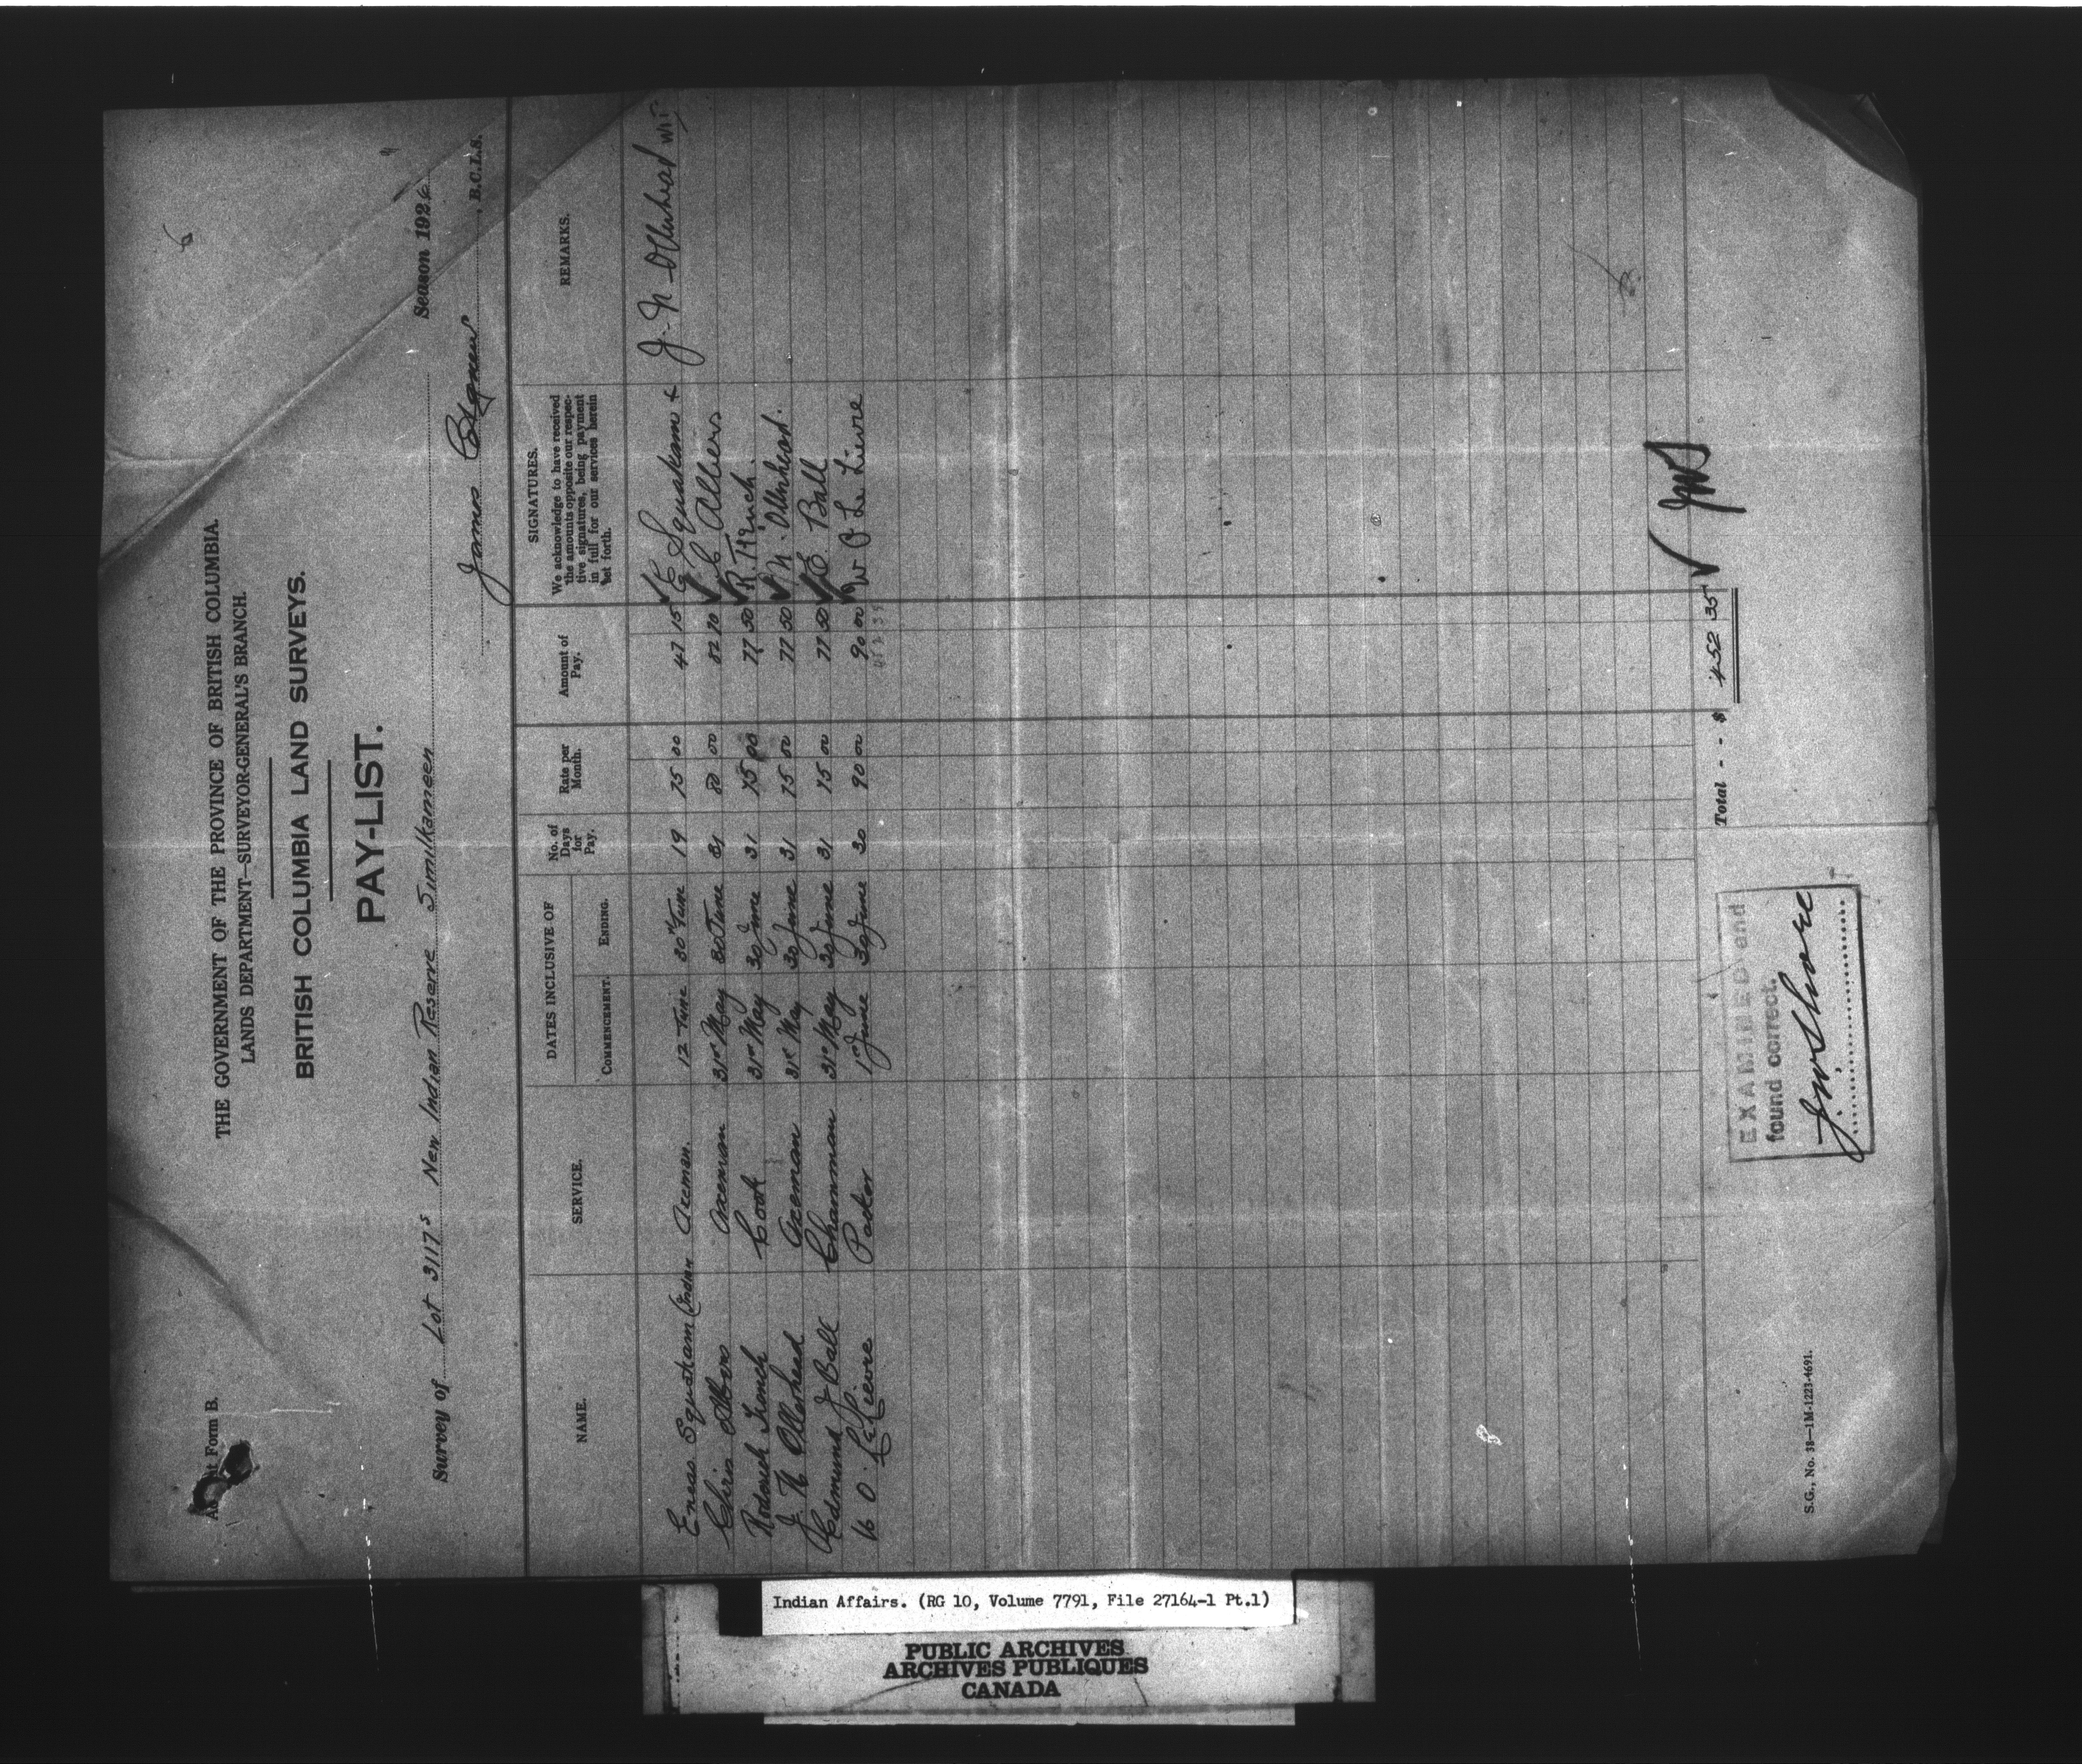 Form B.
THE GOVERNMENT OF THE PROVINCE OF BRITISH COLUMBIA.
LANDS DEPARTMENT—SURVEYOR-GENERAL'S BRANCH.
BRITISH COLUMBIA LAND SURVEYS.
PAY-LIST.
Survey of Lot 3117s New Indian Reserve Similkameen Season 1926
James , B.C.L.S.
NAME. SERVICE. DATES INCLUSIVE OF COMMENCEMENT. ENDING. No. of Days for Pay. Rate per Month. Amount of Pay. SIGNATURES. We acknowledge to have received the amounts opposite our respective signatures, being payment in full for our services herein set forth. REMARKS.
Eneas Squakam (Indian Axeman. 12 June 30th June 19 75 00 47 15 Squakam x J. N. Ollerhead wit
Chris Albers axeman 31st May 30 June 31 80 00 82 70 C Albers
Roderick Cook 31st May 30 June 31 75 00 77 50 R.
J. N Ollerhead Axeman 31st May 30 June 31 75 00 77 50 N. Ollerhead.
Edmund J Ball Chainman 31st May 30 June 31 75 00 77 50 E. Ball
W O. Le Lievre Packer 1st June 30 June 30 90 00 90 00 W O Le Lievre
452 35
Total - - $ 452 35
EXAMINED and
found correct.
S.G., No. 38—1M-1223-4691.
Indian Affairs. (RG 10, Volume 7791, File 27164-1 Pt.1)
PUBLIC ARCHIVES
ARCHIVES PUBLIQUES
CANADA